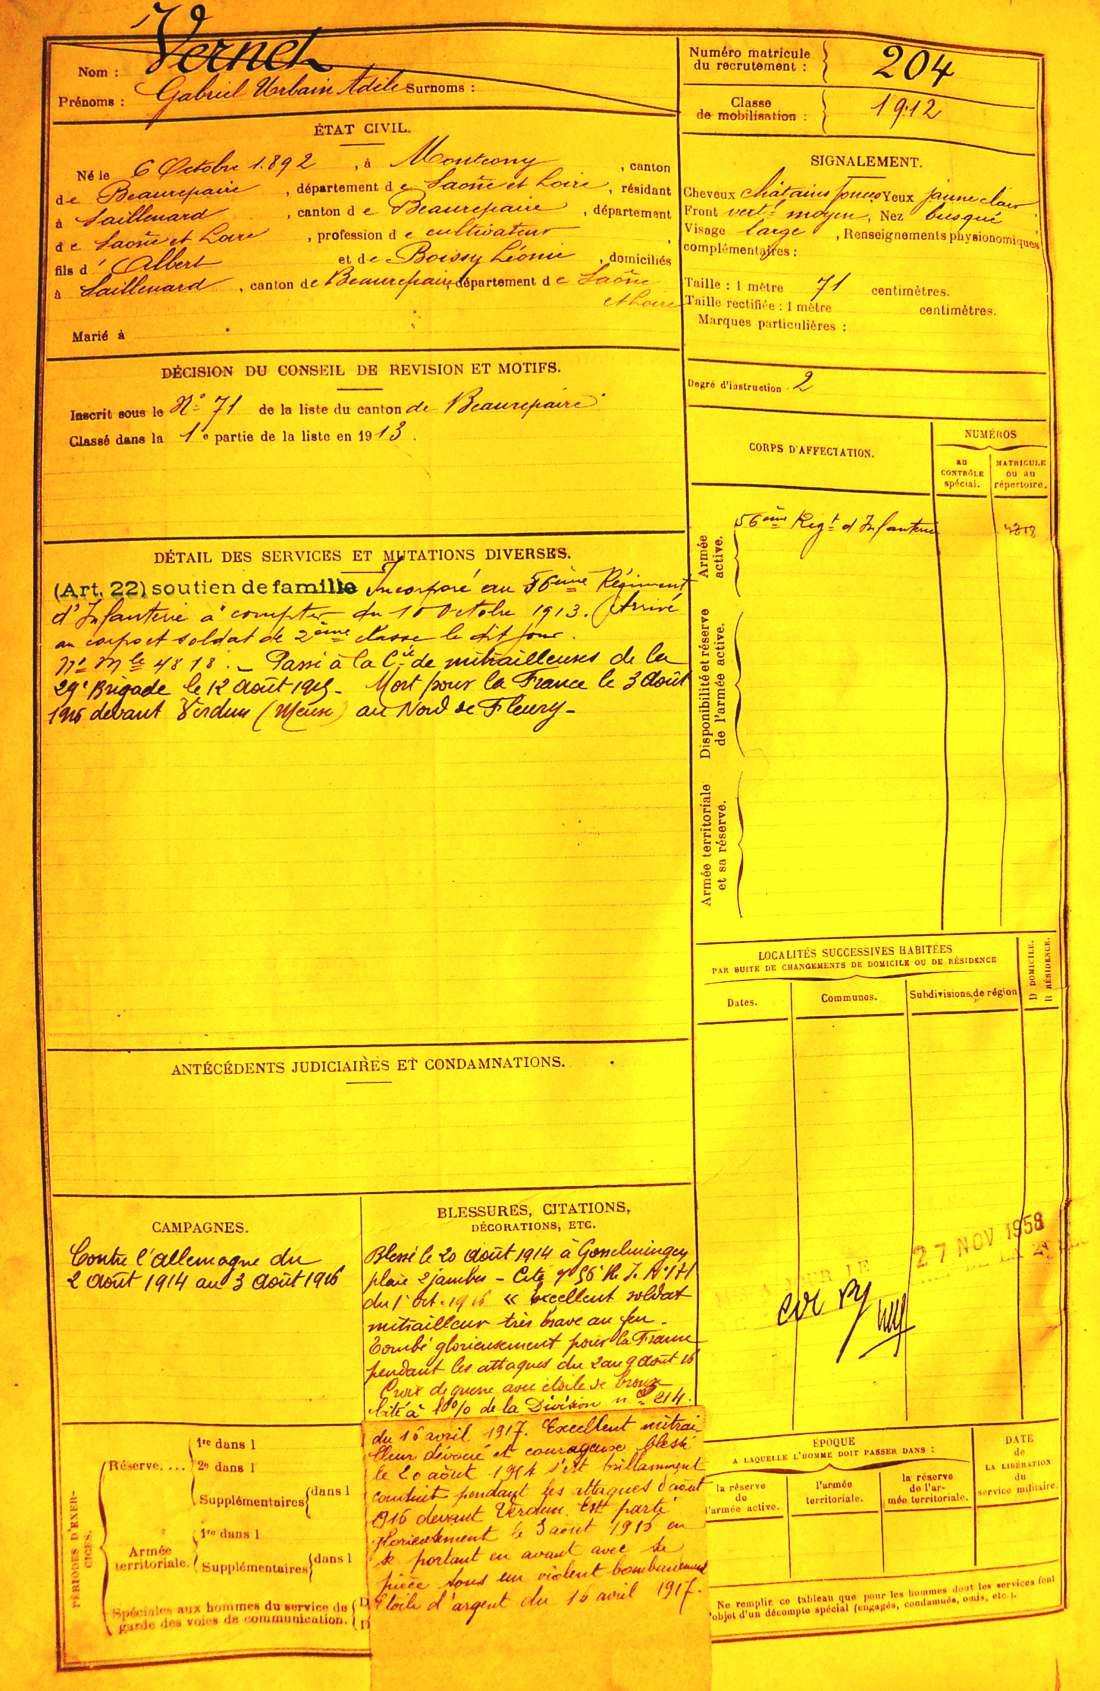 Nom : Vernet
Prénoms : Gabriel Urbain Adile Surnoms :
Numéro matricule
du recrutement : 204
Classe
de mobilisation : 1912
ÉTAT CIVIL.
Né le 6 Octobre 1892, à Montcony, canton
de Beaurepaire, département de Saône et Loire, résidant
à Saillenard, canton de Beaurepaire, département
de Saône et Loire, profession de cultivateur
fils d'Albert et de Boissy Léonie, domiciliés
à Saillenard, canton de Beaurepaire, département de Saône
et Loire
Marié à
SIGNALEMENT.
Cheveux châtains foncés Yeux jaune clair
Front vert. moyen, Nez busqué
Visage large, Renseignements physionomiques
complémentaires :
Taille : 1 mètre 71 centimètres.
Taille rectifiée : 1 mètre centimètres.
Marques particulières :
Degré d'instruction 2
DÉCISION DU CONSEIL DE REVISION ET MOTIFS.
Inscrit sous le N° 71 de la liste du canton de Beaurepaire
Classé dans la 1e partie de la liste en 1913.
CORPS D'AFFECTATION.
NUMÉROS
AU
CONTRÔLE
spécial.
MATRICULE
OU AU
répertoire.
Armée
active.
56ème Regt d'Infanterie
4818
Disponibilité et réserve
de l'armée active.
Armée territoriale
et sa réserve.
DÉTAIL DES SERVICES ET MUTATIONS DIVERSES.
(Art. 22) soutien de famille Incorporé au 56ème Régiment
d'Infanterie à compter du 10 Octobre 1913. Arrivé
au corps et soldat de 2ème classe le dit jour.
N° Mle 4818. _ Passé à la Cie de mitrailleuses de la
29e Brigade le 12 Août 1915_ Mort pour la France le 3 Août
1916 devant Verdun (Meuse) au Nord de Fleury_
LOCALITÉS SUCCESSIVES HABITÉES
PAR SUITE DE CHANGEMENTS DE DOMICILE OU DE RÉSIDENCE
D DOMICILE.
R RÉSIDENCE.
Dates.
Communes.
Subdivisions de région
ANTÉCÉDENTS JUDICIAIRES ET CONDAMNATIONS.
CAMPAGNES.
Contre l'allemagne du
2 Août 1914 au 3 Août 1916
BLESSURES, CITATIONS,
DÉCORATIONS, ETC.
Blessé le 20 Août 1914 à Gosselmingen
plaie 2 jambes _ Cité
du 1er Oct. 1916 « Excellent soldat
mitrailleur très brave au feu _
Tombé glorieusement pour la France
pendant les attaques du 2 au 9 Août 16
Croix de guerre avec étoile de bronze
Cité à l'O/ de la Division n° 214.
du 16 avril 1917. Excellent mitrail
leur dévoué et courageux blessé
le 20 août 1914 s'est brillamment
conduit pendant les attaques d'août
1916 devant Verdun. Est parti
glorieusement le 3 août 1916 en
se portant en avant avec sa
pièce sous un violent bombardement
Etoile d'argent du 16 avril 1917.
27 NOV 1958
PÉRIODES D'EXERCICES.
Réserve....
1re dans l
2e dans l
Supplémentaires dans l
Armée
territoriale.
1re dans l
Supplémentaires dans l
Spéciales aux hommes du service de
garde des voies de communication.
ÉPOQUE
A LAQUELLE L'HOMME DOIT PASSER DANS :
la réserve
de
l'armée active.
l'armée
territoriale.
la réserve
de l'ar-
mée territoriale.
DATE
de
LA LIBÉRATION
du
service militaire.
Ne remplir ce tableau que pour les hommes dont les services font
l'objet d'un décompte spécial (engagés, condamnés, omis, etc.).